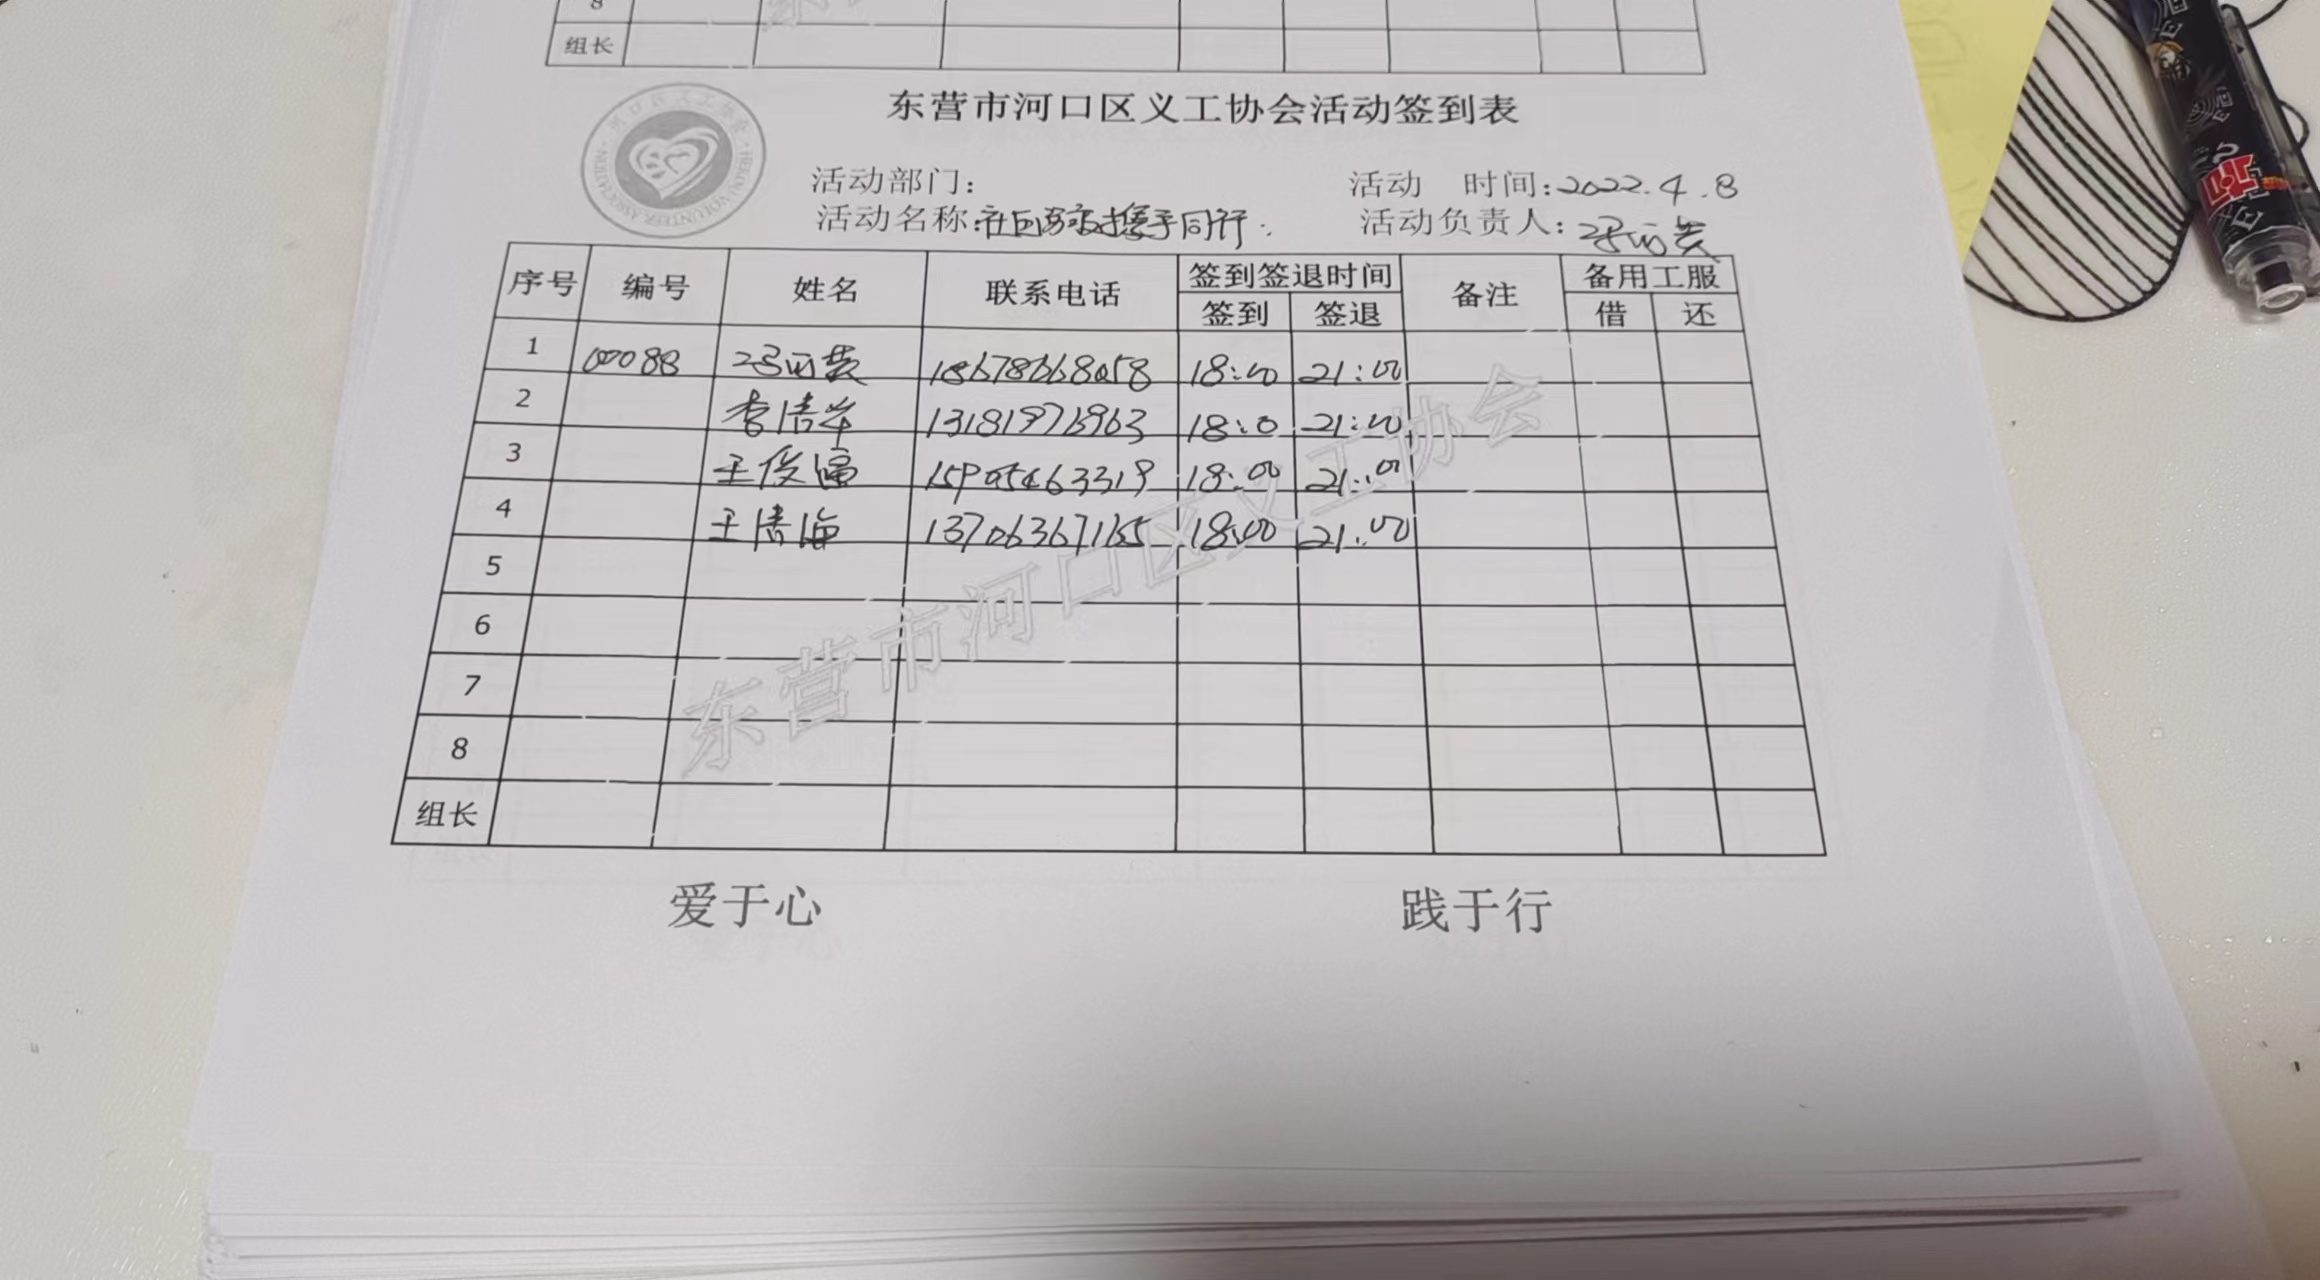 8
组长
东营市河口区义工协会活动签到表
活动部门:
活动 时间:2022.4.8
活动名称: 携手同行
活动负责人:
序号 编号 姓名 联系电话 签到签退时间 备注 备用工服
签到 签退 借 还
1 00088 18678668058 18:00 21:00
2 13181976963 18:0 21:00
3 王俊 15905463319 18:00 21:00
4 王 海 13706367165 18:00 21:00
5
6
7
8
组长
东营市河口区义工协会
爱于心 践于行